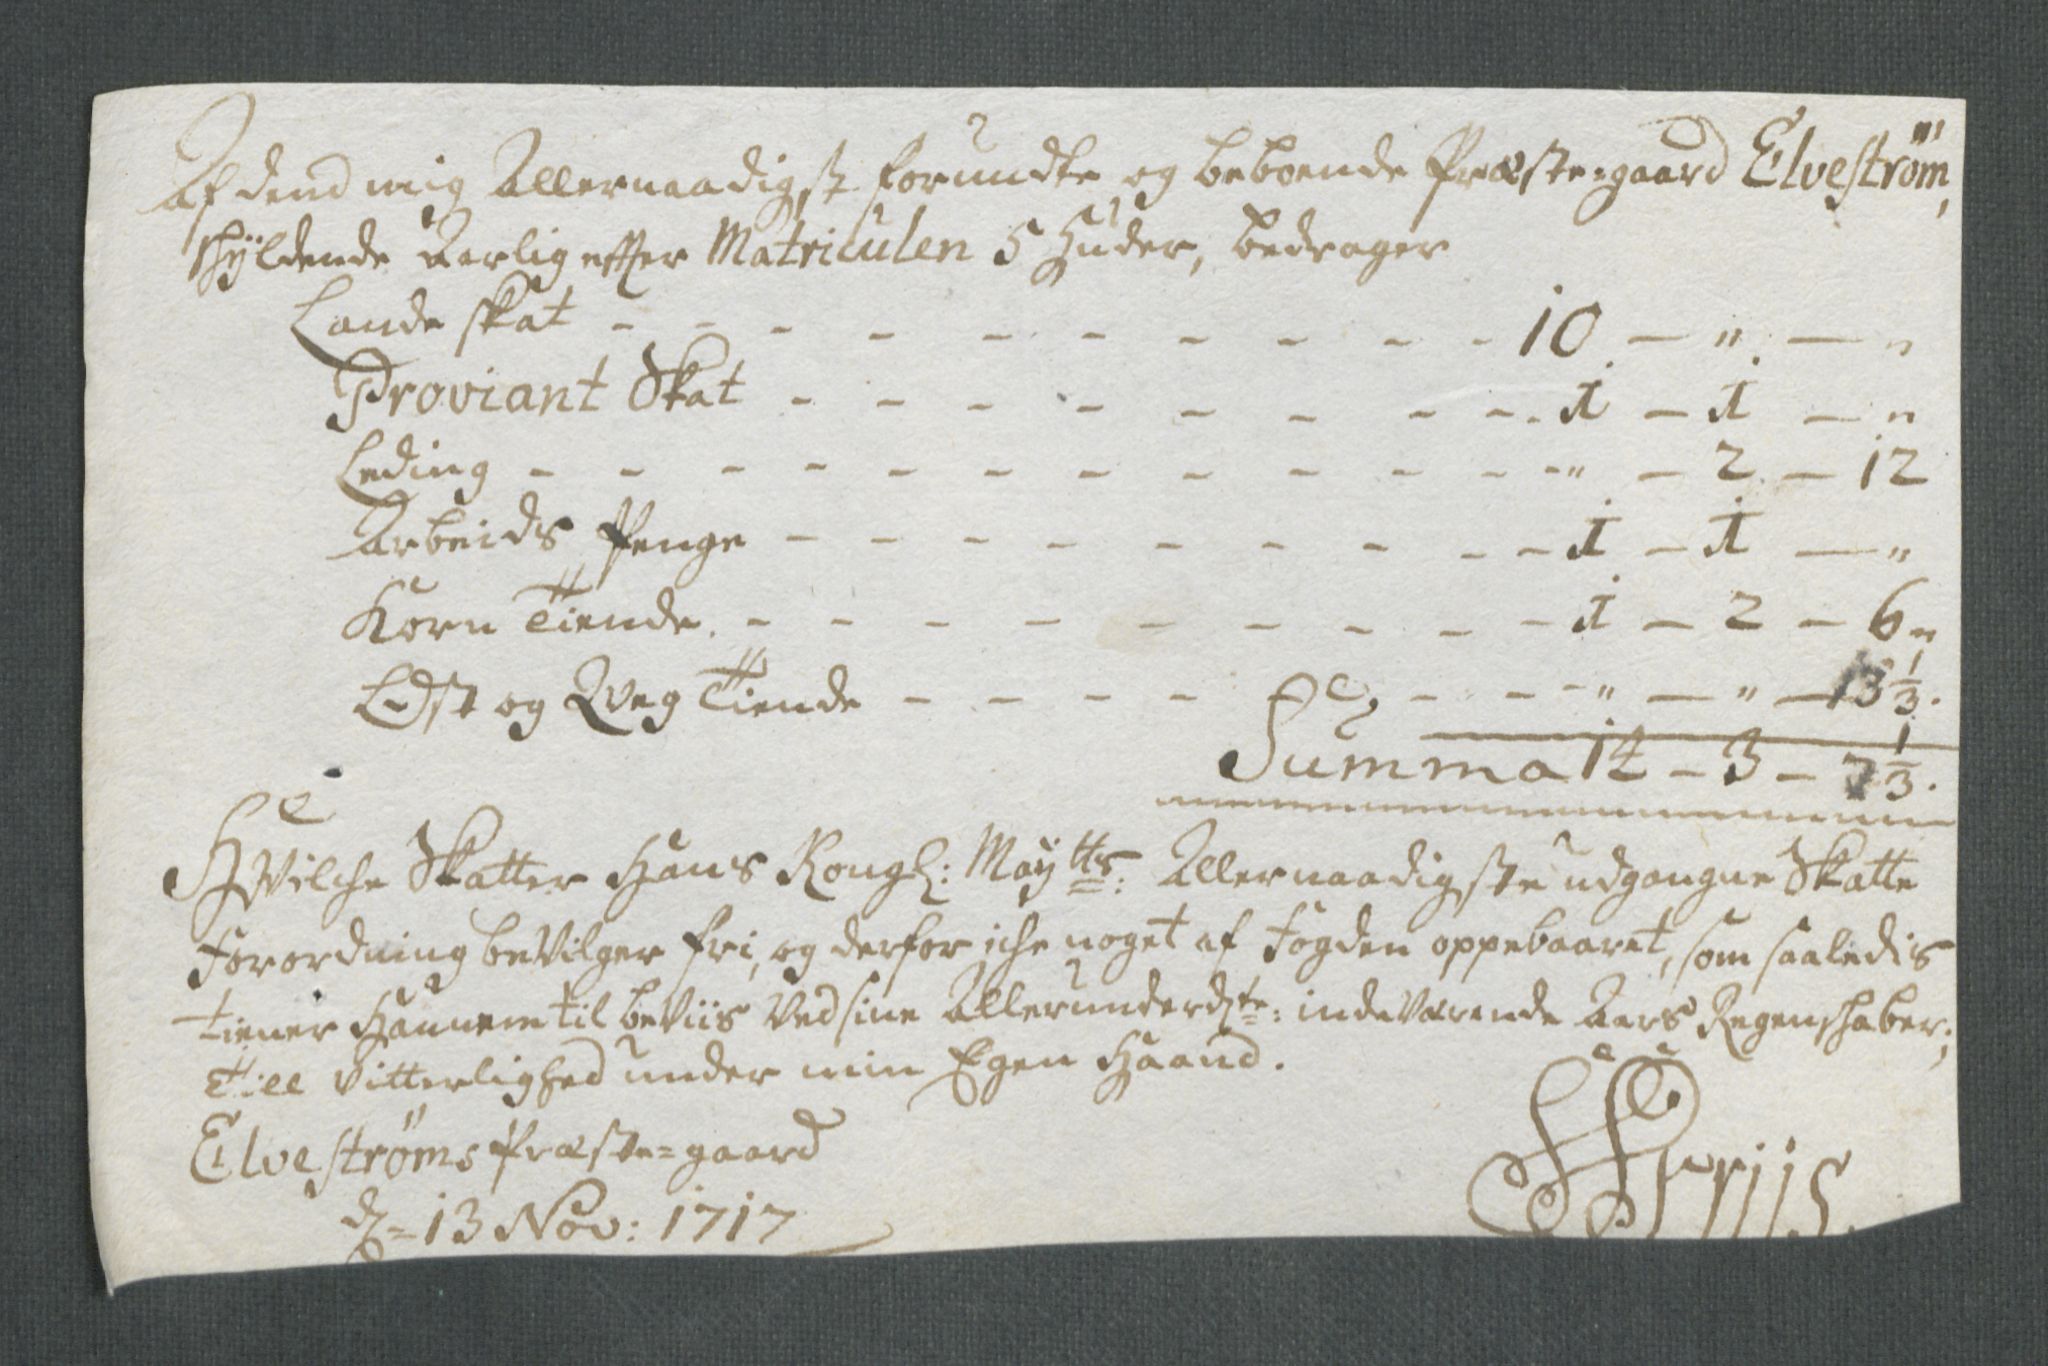 Af dend mig Allernaadigst forundte og beboende Præste-gaard Elveström,
skyldende Aarlig effter Matriculen 5 Huder, bedrager
Lande skat - - - - - - - - - - 10 - " - "
Proviant Skat - - - - - - - - - 1 - 1 - "
Leding - - - - - - - - - - - " - 2 - 12
Arbeids Penge - - - - - - - - - 1 - 1 - "
Korn Tiende - - - - - - - - - 1 - 2 - 6 "
Ost og Qveg Tiende - - - - - - - " - " - 13 1/3.
Summa 14 - 3 - 7 1/3.
Hvilche Skatter Hans Kongl: Maytts: Allernaadigste udgangne Skatte
Forordning beVilger fri, og derfor iche noget af Fogden oppebaaret, som saaledis
tiener Hannem til beViis Ved sine Allerunderdte: indeværende Aars Regenskaber;
Till Vitterlighed under min Egen Haand.
Elveströms Præste-gaard
d= 13 Nov: 1717
Friis.